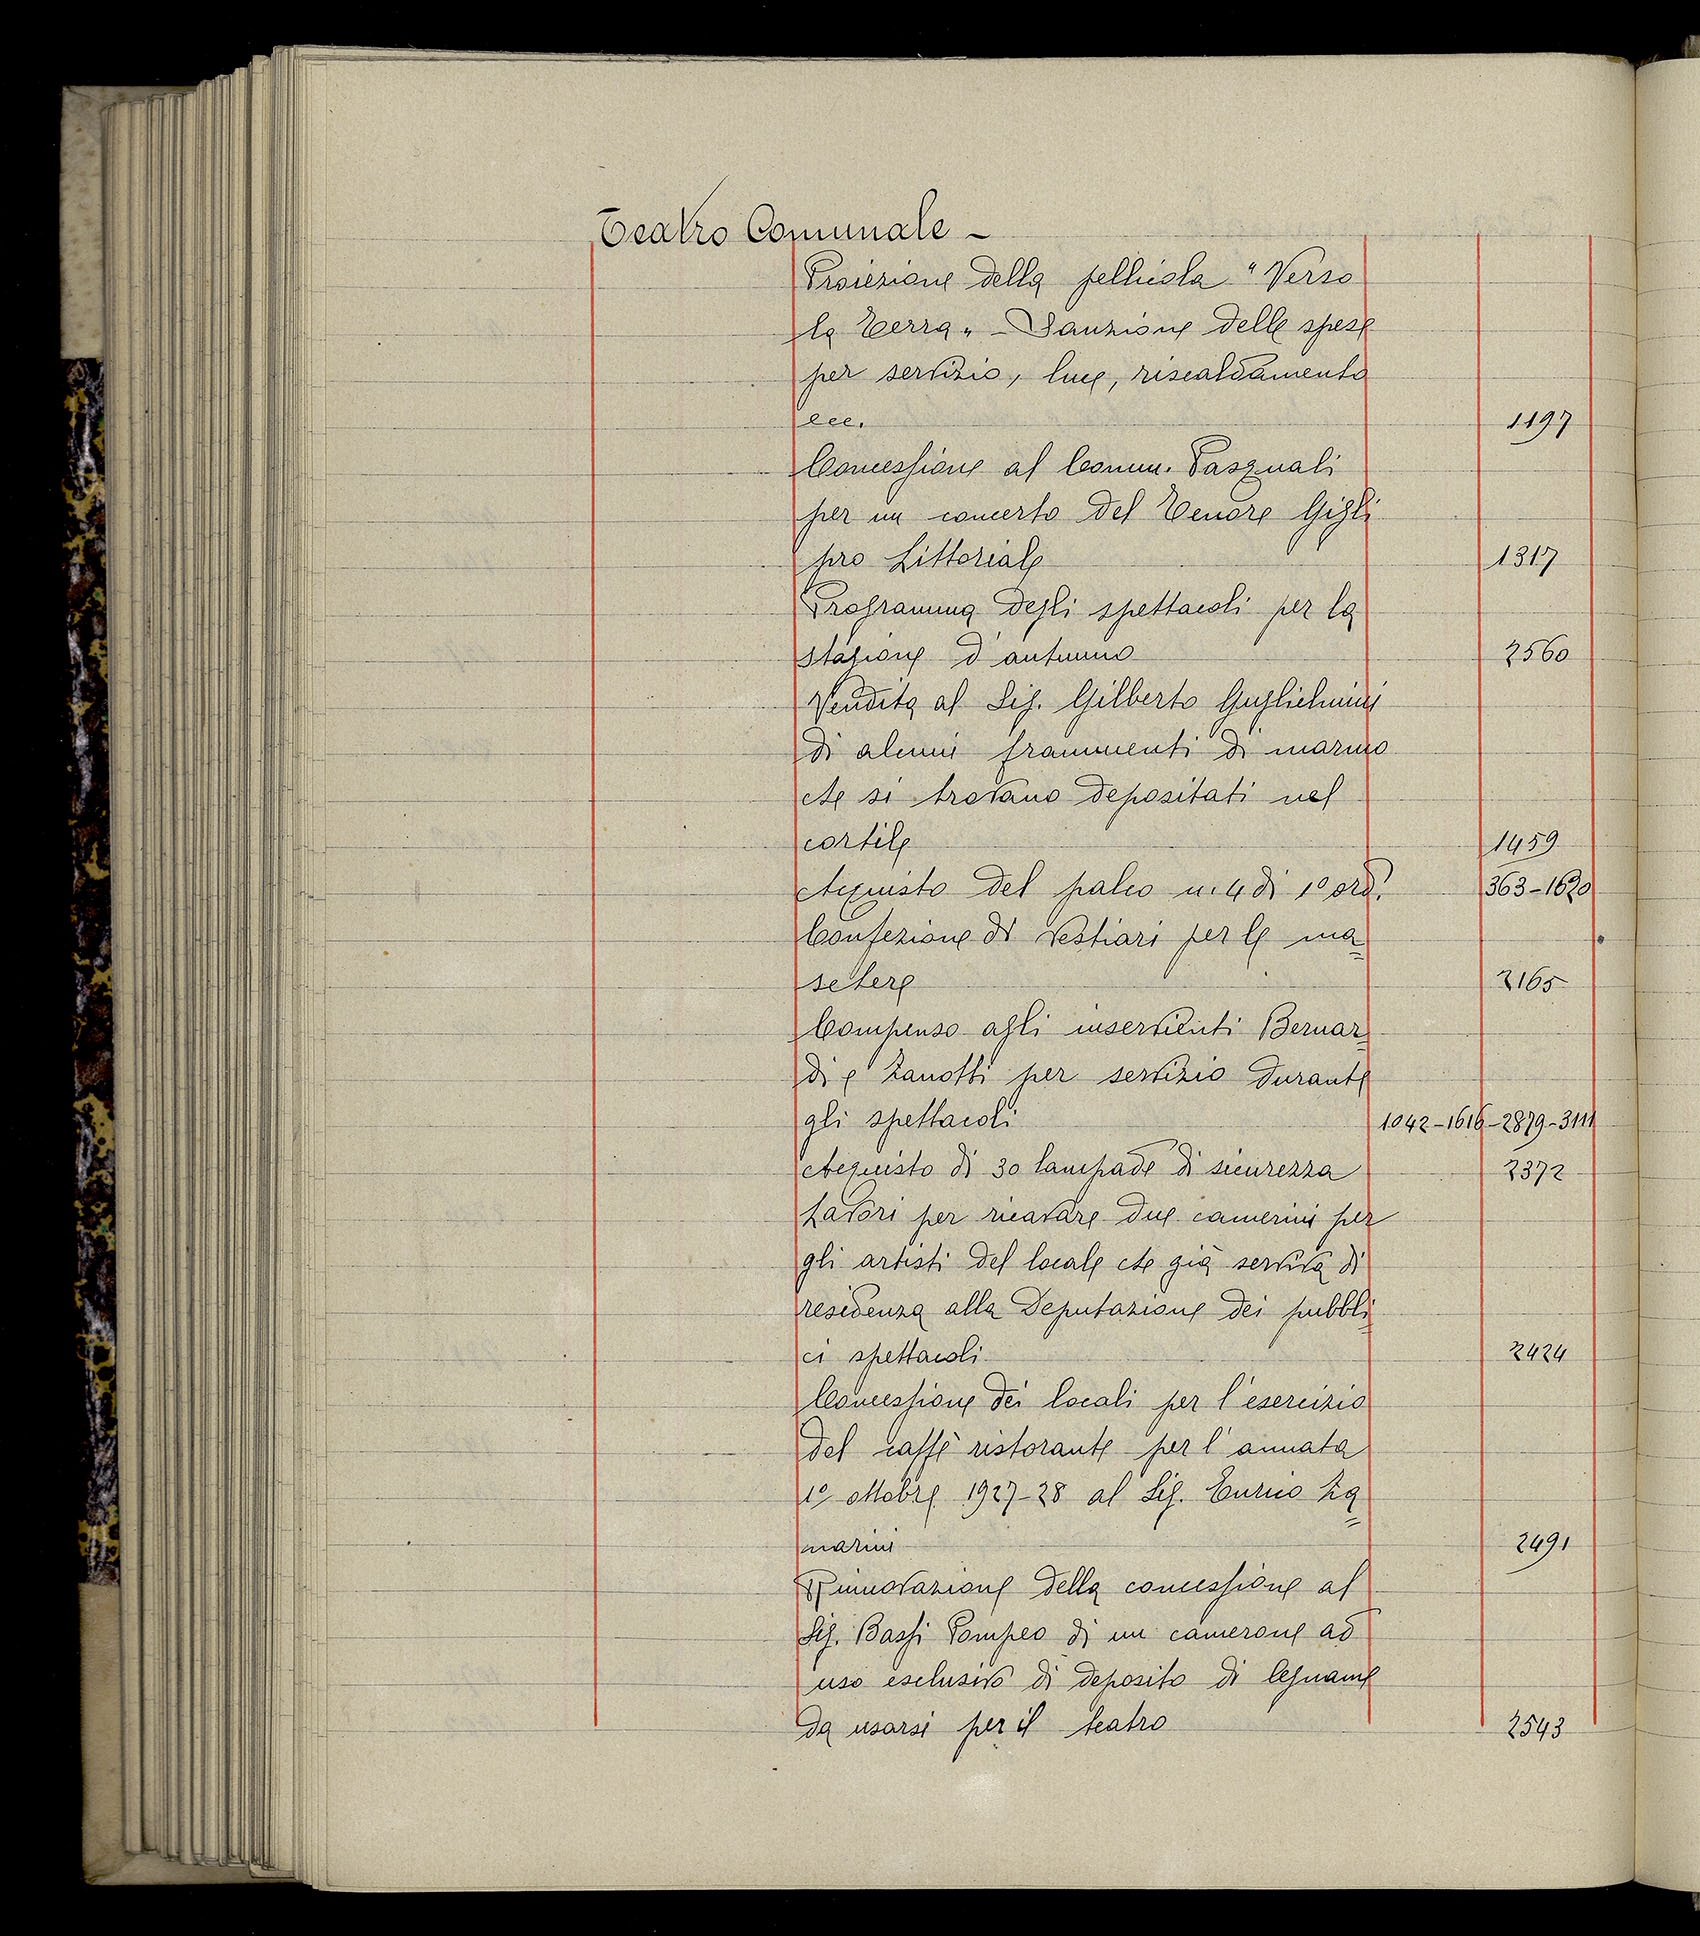 Teatro Comunale -
Proiezione della pellicola "Verso
la Terra" - Sanzione delle spese
per servizio, luce, riscaldamento
ecc. 1197
Concessione al Comm. Pasquali
per un concerto del Tenore Gigli
pro Littoriale 1317
Programma degli spettacoli per la
stagione d'autunno 2560
Vendita al Sig. Gilberto Guglielmini
di alcuni frammenti di marmo
che si trovano depositati nel
cortile 1459
Acquisto del palco n. 4 di 1º ord. 363-1620
Confezione di vestiari per le ma=
schere 2165
Compenso agli inservienti Bernar=
di e Zanotti per servizio durante
gli spettacoli 1042-1616-2879-3111
Acquisto di 30 lampade di sicurezza 2372
Lavori per ricavare due camerini per
gli artisti del locale che già serviva di
residenza alla Deputazione dei pubbli=
ci spettacoli 2424
Concessione dei locali per l'esercizio
del caffè ristorante per l'annata
1º ottobre 1927-28 al Sig. Enrico Za=
marini 2491
Rinnovazione della concessione al
Sig. Bassi Pompeo di un camerone ad
uso esclusivo di deposito di legname
da usarsi per il teatro 2543